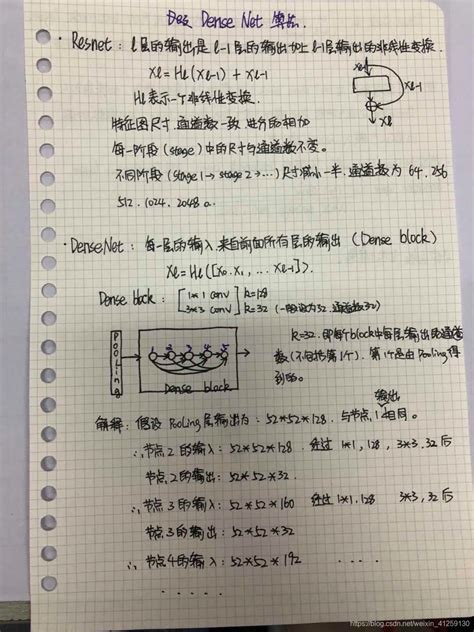 Dense Net 博客.
· Resnet: l层的输出是 l-1层的输出加上 l-1层输出的非线性变换.
Xl = Hl(Xl-1) + Xl-1
Hl 表示一个非线性变换.
Xl-1
Xl
特征图尺寸.通道数一致 进行的相加
每一阶段 (stage) 中的尺寸与通道数不变。
不同阶段 (stage 1 → stage 2 → …) 尺寸减小一半.通道数为 64. 256
512. 1024. 2048 a.
· DenseNet: 每一层的输入来自前面所有层的输出 (Dense block)
Xl = Hl([X0. X1, ... Xl-1]).
Dense block: [1*1 conv] k=128
[3*3 conv] k=32 (一般设为32.通道数32)
POOLING
1 2 3 4 5
Dense block
k=32. 即每个block中每层输出的通道
数 (不包括第1个). 第1个是由 Pooling 得
到的。
输出
解释: 假设 Pooling 层输出为: 52*52*128. 与节点1相同。
∴ 节点2的输入: 52*52*128 经过 1*1, 128, 3*3, 32后
节点2的输出: 52*52*32.
∴ 节点3的输入: 52*52*160 经过 1*1. 128 3*3, 32后
节点3的输出: 52*52*32
∴ 节点4的输入: 52*52*192 ....
.....
https://blog.csdn.net/weixin_41259130